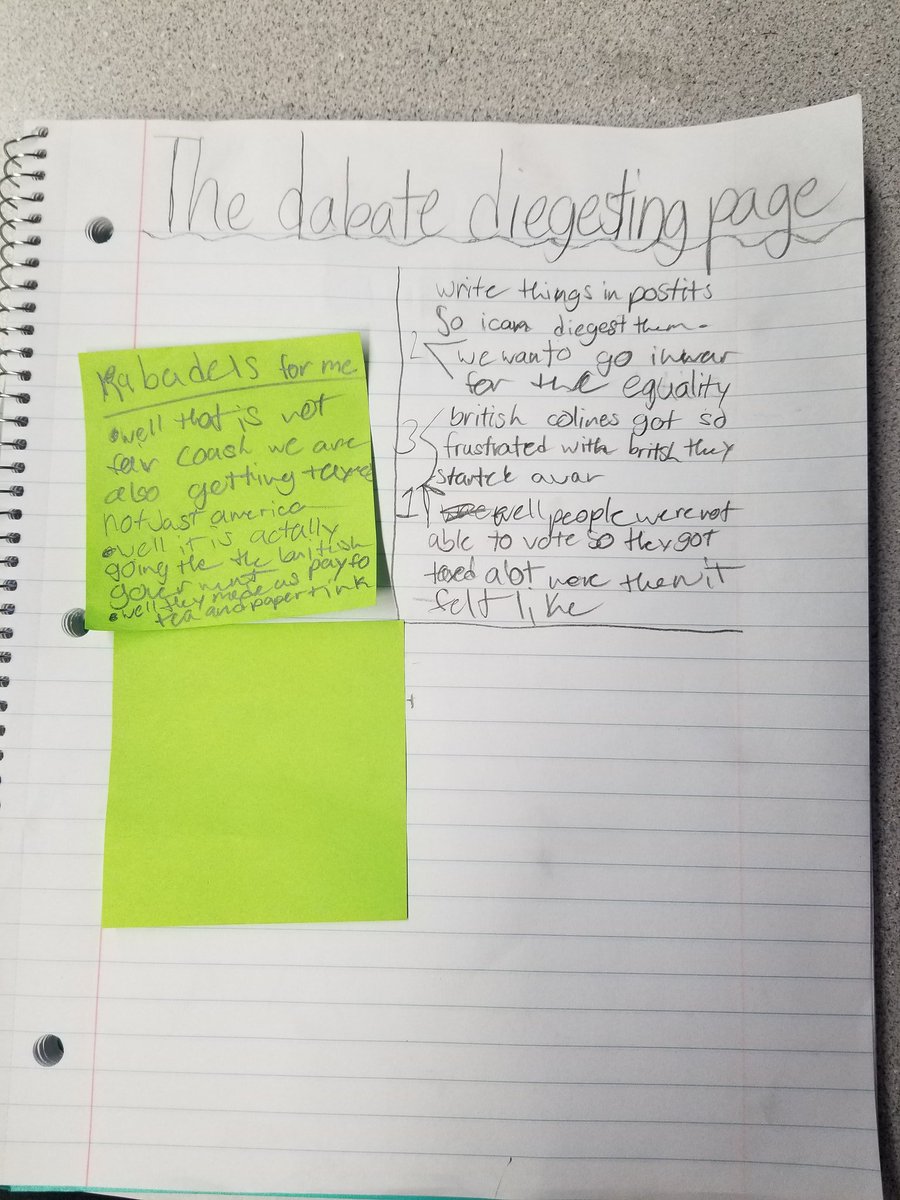 The dabate diegesting page
write things in postits
So i can diegest them.
2 we wan to go in war
for the equality
british colines got so
3 frustrated with britsh they
startek a war
1 well people were not
able to vote so they got
taxed alot more then it
felt like
Rabadels for me
• well that is not
fair coash we are
also getting taxed
not Jast america
• well it is actally
going the the british
goverment
• well they made us pay fo
tea and paper + ink